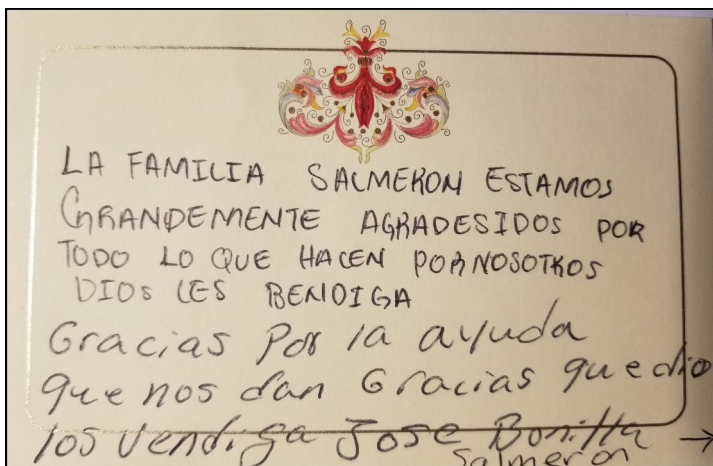 LA FAMILIA SALMERON ESTAMOS
GRANDEMENTE AGRADESIDOS POR
TODO LO QUE HACEN POR NOSOTROS
DIOS LES BENDIGA
Gracias Por la ayuda
que nos dan Gracias que dio
los Vendiga Jose Bonilla →
Salmeron